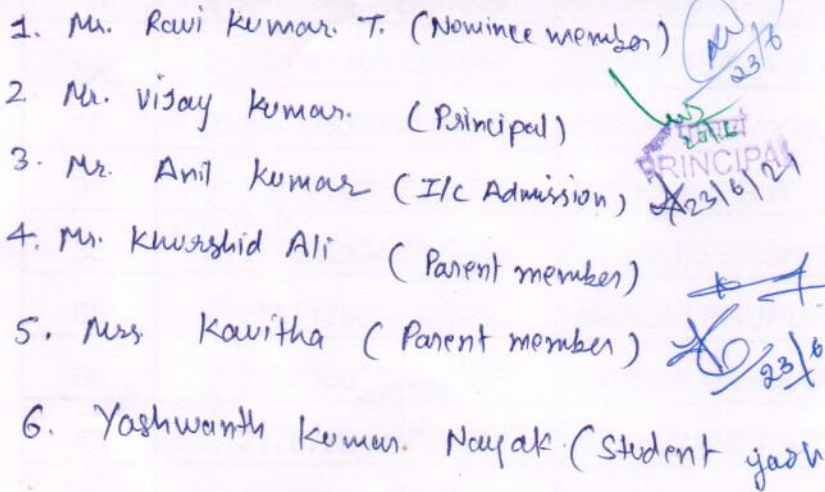 1. Mr. Ravi Kumar. T. (Nominee member)
23/6
2. Mr. Vijay Kumar. (Principal)
PRINCIPAL
3. Mr. Anil Kumar (I/c Admission)
23/6/21
4. Mr. Khurshid Ali (Parent member)
5. Mrs Kavitha (Parent member)
23/6
6. Yashwanth Kumar. Nayak (Student